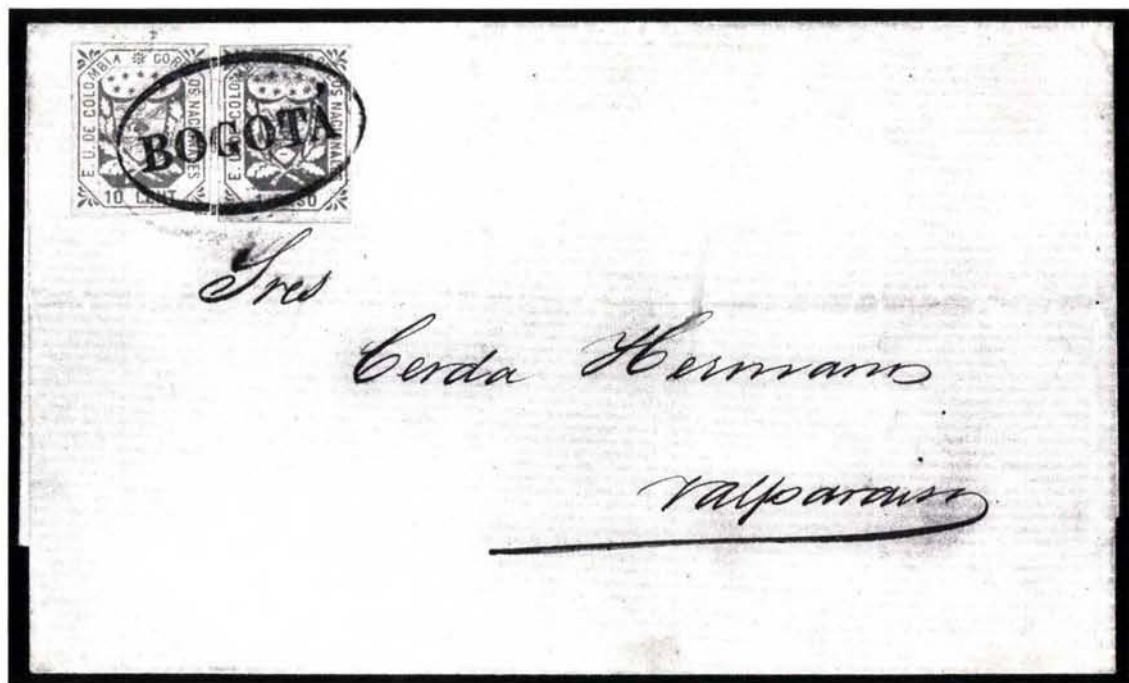 E. U. DE COLOMBIA CORREOS NACIONALES
10 CENT
E. U. DE COLOMBIA CORREOS NACIONALES
1 PESO
BOGOTÁ
Sres
Cerda Hermanos
Valparaiso